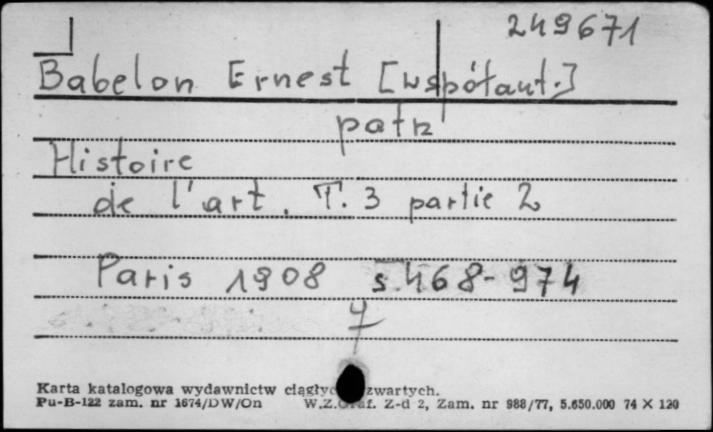 249671
Babelon Ernest [współaut.]
patrz
Histoire
de l'art. T. 3 partie 2
Paris 1908 s. 468-974
4
Karta katalogowa wydawnictw zwartych.
Pu-B-122 zam. nr 1674/DW/On W.Z.Graf. Z-d 2, Zam. nr 988/77, 5.650.000 74 X 120